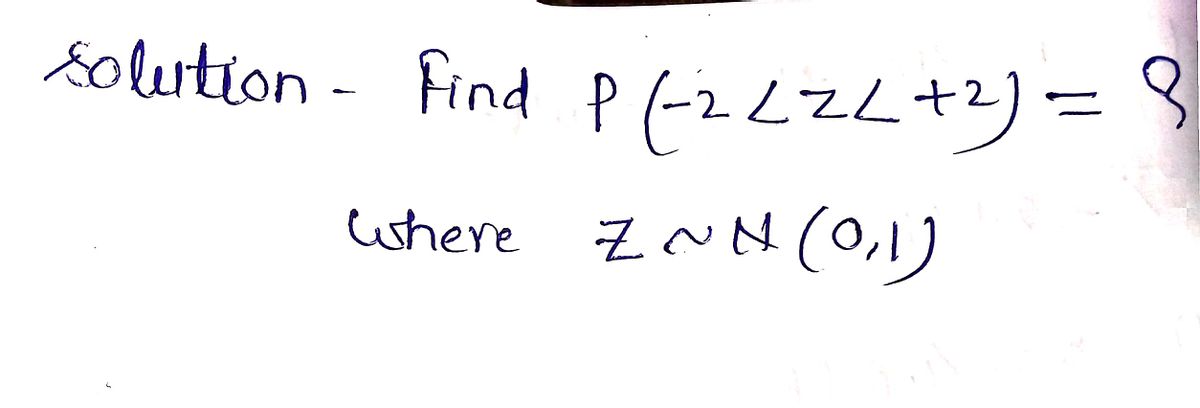 solution - Find P(-2<Z<+2) = ?
where Z ~ N(0,1)